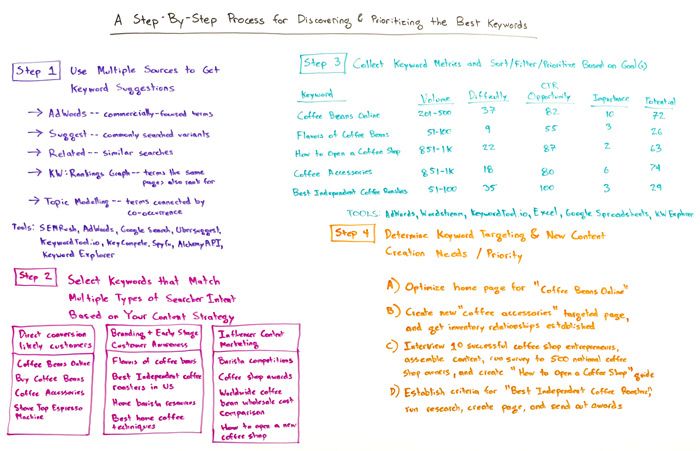 A Step-By-Step Process for Discovering & Prioritizing the Best Keywords
Step 1
Use Multiple Sources to Get
Keyword Suggestions
→ AdWords -- commercially-focused terms
→ Suggest -- commonly searched variants
→ Related -- similar searches
→ KW:Rankings Graph -- terms the same
pages also rank for
→ Topic Modelling -- terms connected by
co-occurrence
Tools: SEMRush, AdWords, Google Search, Ubersuggest,
KeywordTool.io, KeyCompete, SpyFu, AlchemyAPI,
Keyword Explorer
Step 2
Select Keywords that Match
Multiple Types of Searcher Intent
Based on Your Content Strategy
Direct conversion
likely customers
Coffee Beans Online
Buy Coffee Beans
Coffee Accessories
Stove Top Espresso
Machine
Branding + Early Stage
Customer Awareness
Flavors of coffee beans
Best Independent coffee
roasters in US
Home barista resources
Best home coffee
techniques
Influencer Content
Marketing
Barista competitions
Coffee shop awards
Worldwide coffee
bean wholesale cost
comparison
How to open a new
coffee shop
Step 3
Collect Keyword Metrics and Sort/Filter/Prioritize Based on Goal(s)
Keyword Volume Difficulty CTR Opportunity Importance Potential
Coffee Beans Online 201-500 37 82 10 72
Flavors of Coffee Beans 51-100 9 55 3 26
How to Open a Coffee Shop 851-1K 22 87 2 63
Coffee Accessories 851-1K 18 80 6 74
Best Independent Coffee Roasters 51-100 35 100 3 29
TOOLS: AdWords, Wordstream, KeywordTool.io, Excel, Google Spreadsheets, KW Explorer
Step 4
Determine Keyword Targeting & New Content
Creation Needs / Priority
A) Optimize home page for "Coffee Beans Online"
B) Create new "coffee accessories" targeted page,
and get inventory relationships established
C) Interview 10 successful coffee shop entrepreneurs,
assemble content, run survey to 500 national coffee
shop owners, and create "How to open a Coffee Shop" guide
D) Establish criteria for "Best Independent Coffee Roasters,"
run research, create page, and send out awards